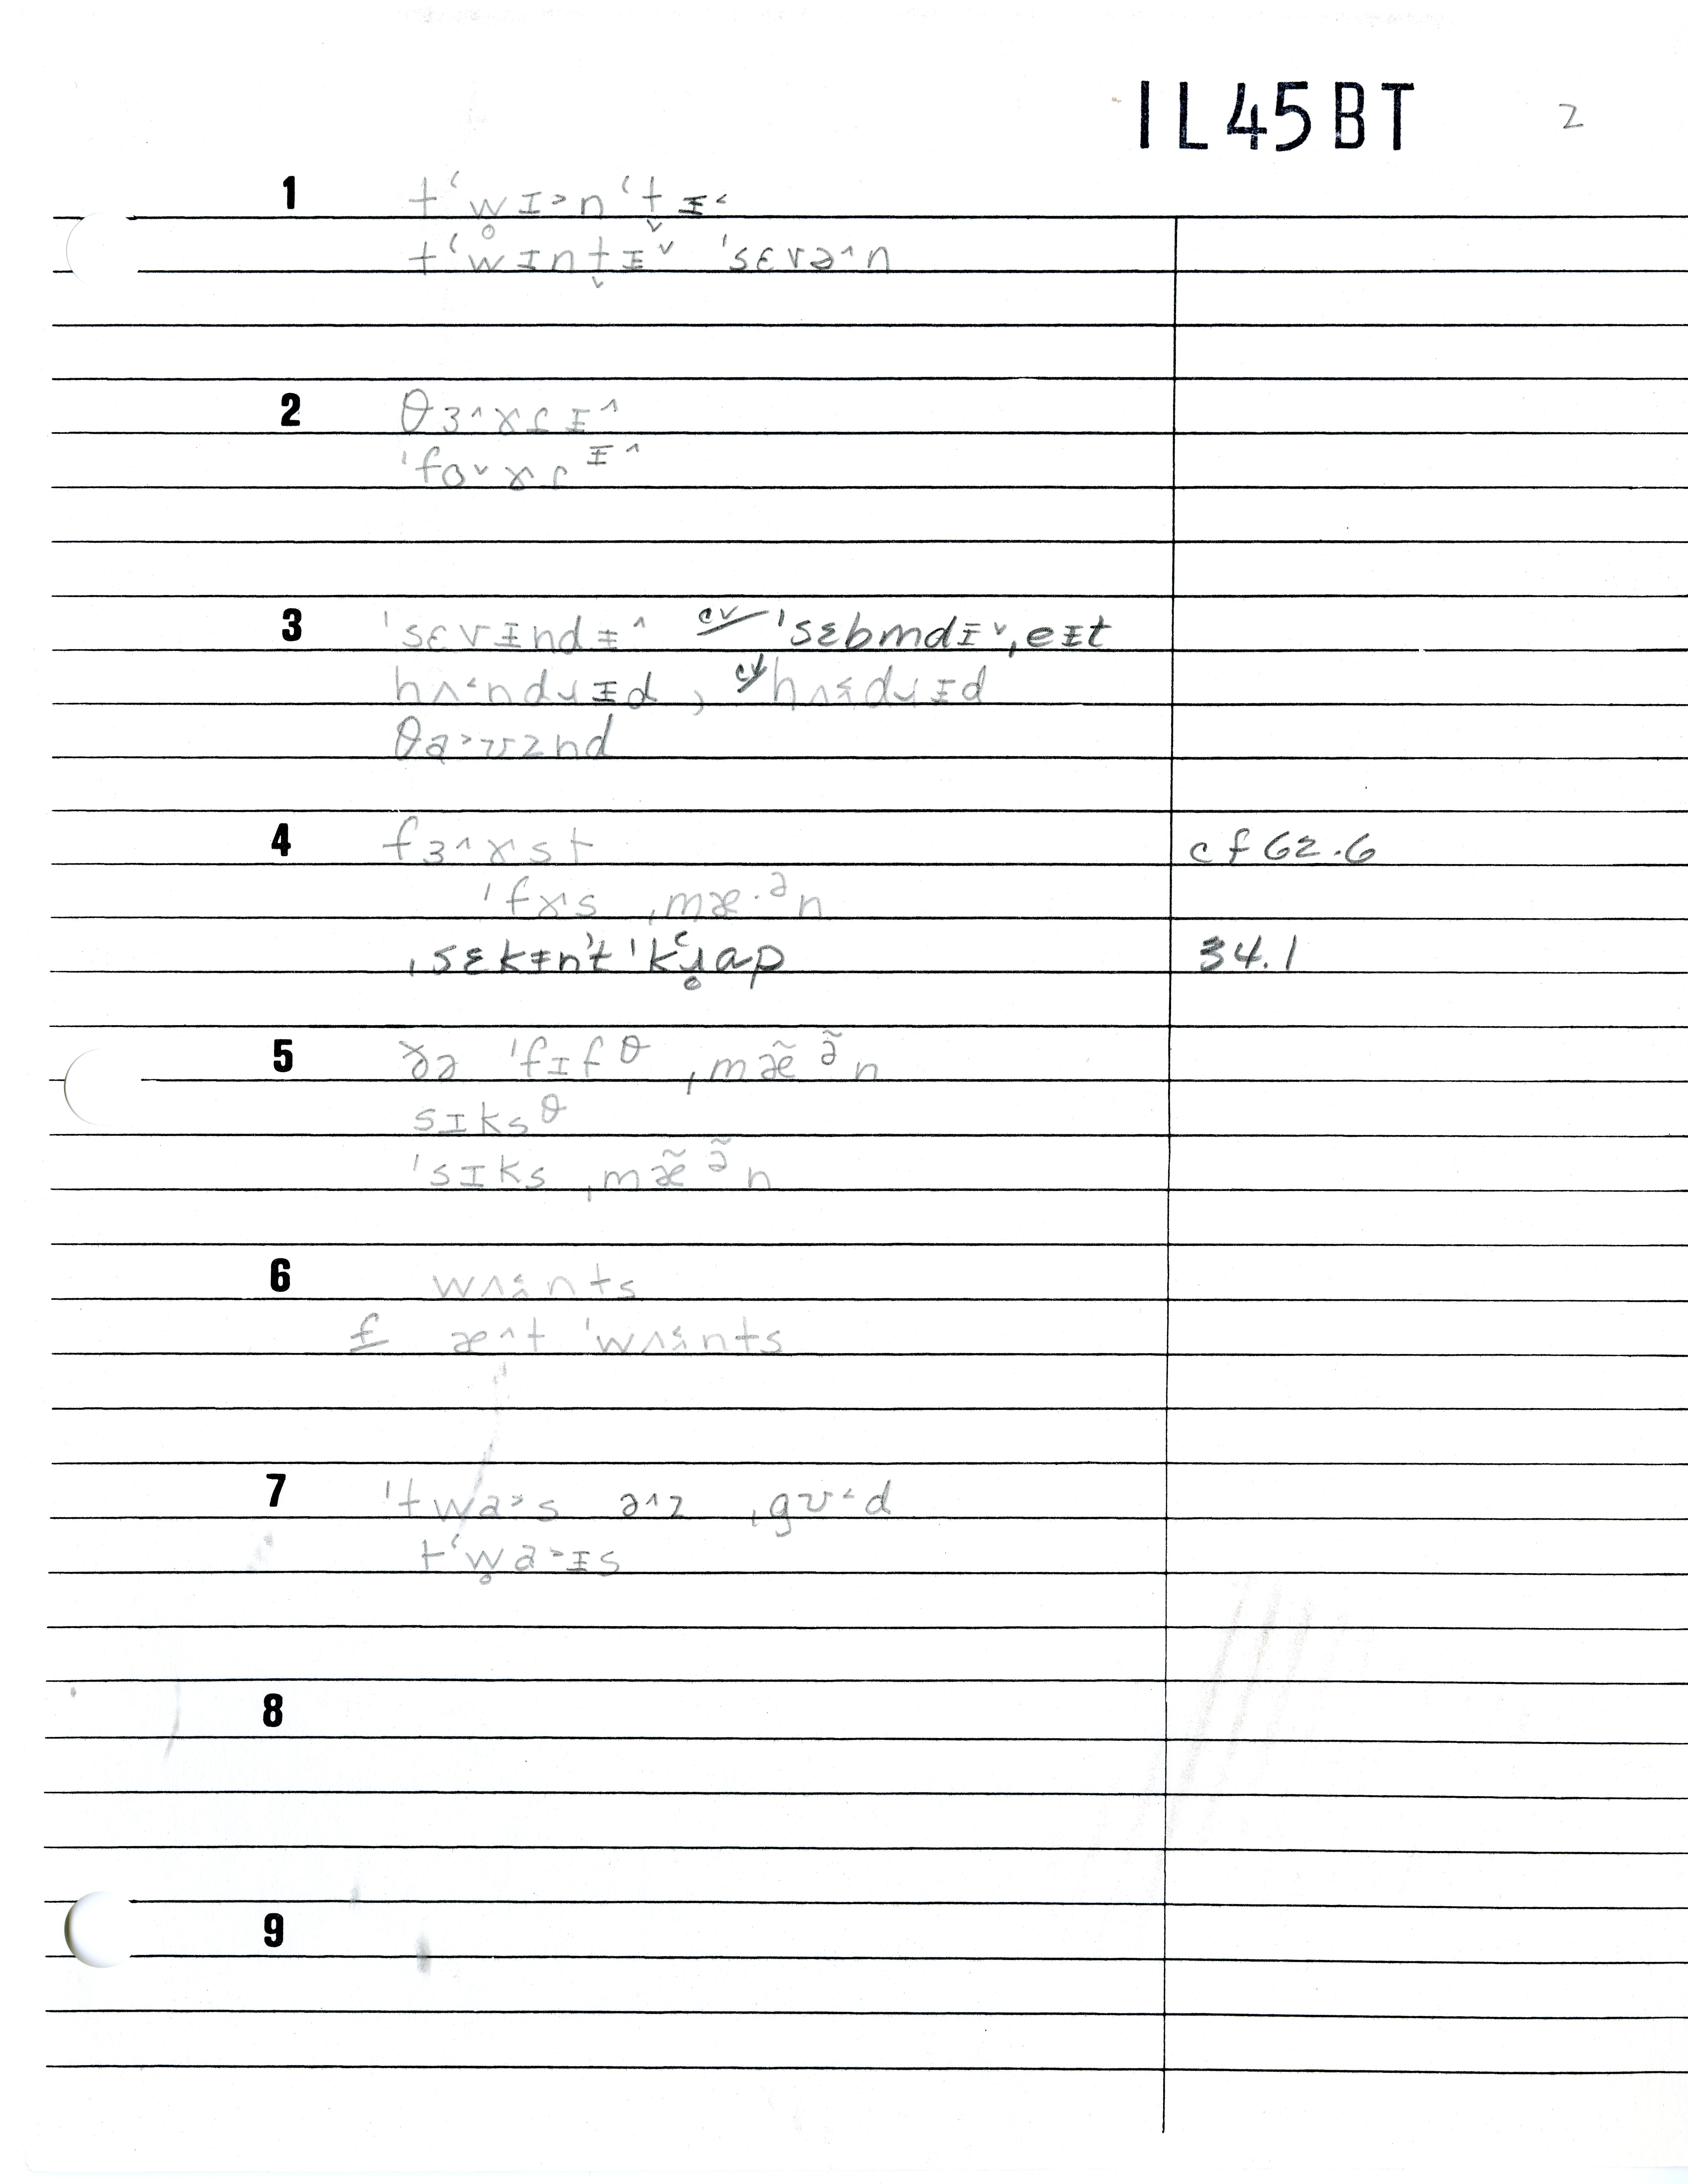 IL45BT 2
1 tʻw̥ɪ˃nʻt̬ɪ˂
tʻwɪnt̬ɪ˅ ˈsɛvə^n
2 θɜ^ɤɾɪ^
ˈfo˅ɤɾɪ^
3 ˈsɛvɪndɪ^ cv ˈsɛbmdɪ˅ˌeɪt
hʌ˂ndɹɪd , cv hʌ˂dɹɪd
θa˃ʊznd
4 fɜ^ɤst cf 62.6
ˈfɤs ˌmæ·ᵊn
ˌsɛkɪnʼt ˈkʻɹ̥ap 34.1
5 ðə ˈfɪfθ ˌmæ̃ə̃n
sɪksθ
ˈsɪks ˌmæ̃ə̃n
6 wʌ˂nts
f æ^t ˈwʌ˂nts
7 ˈtwa˃s ə^z ˌgʊ˂d
tʻw̥a˃ɪs
8
9